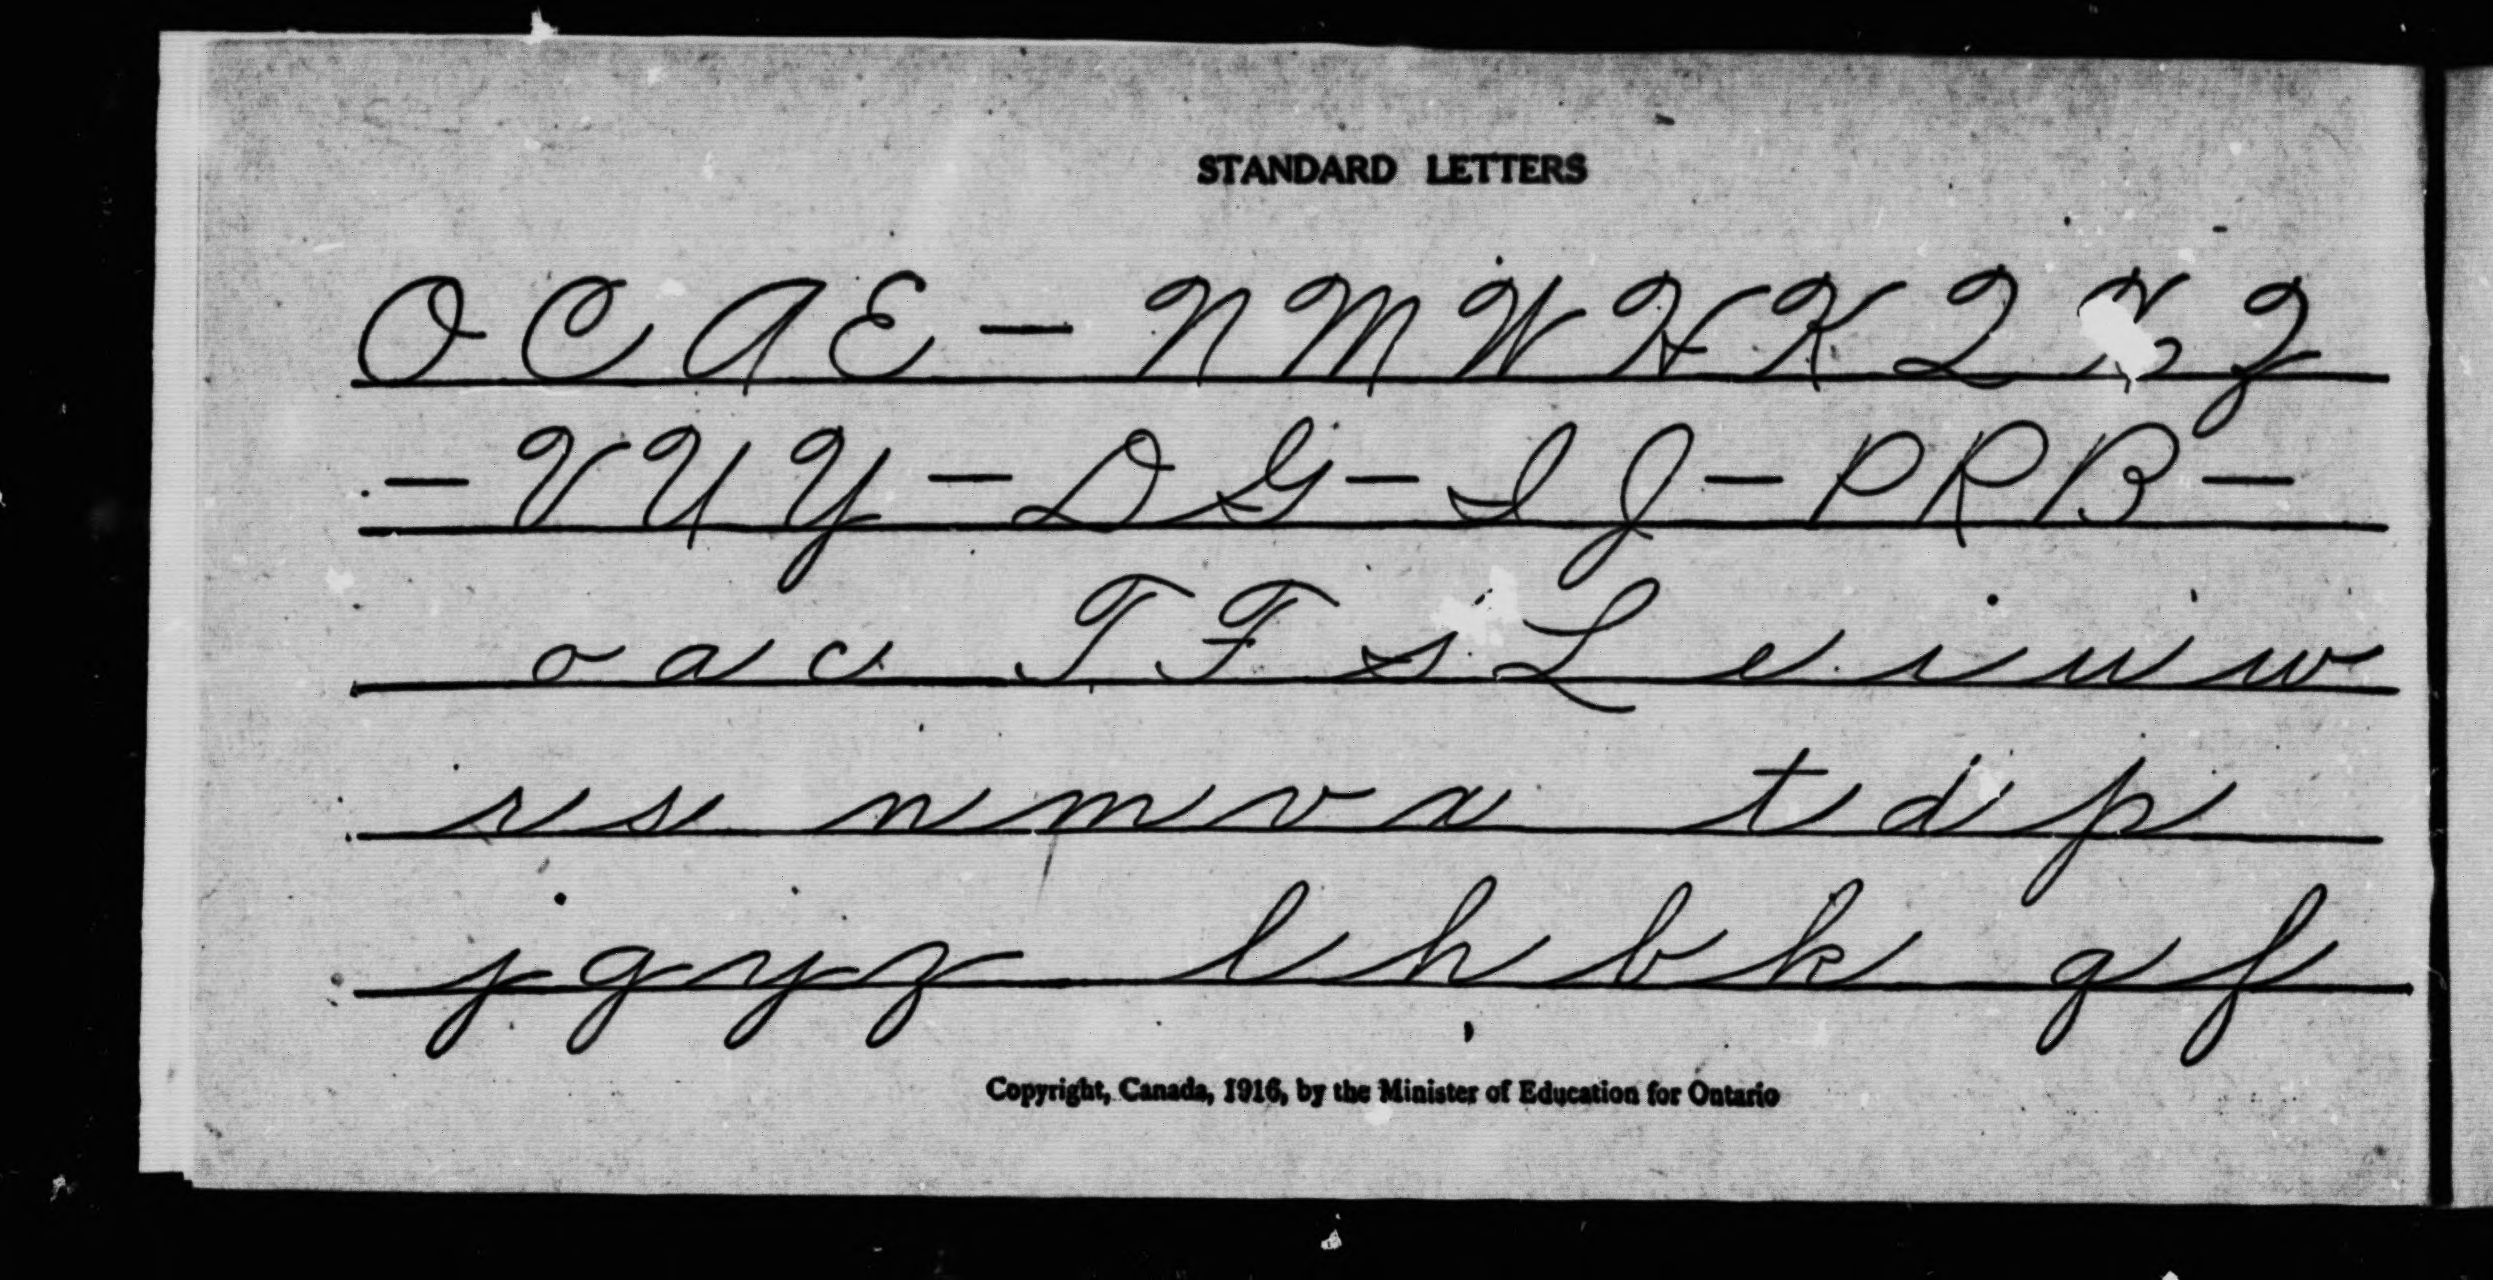 STANDARD LETTERS
O C A E — N M W H K Q X Z
— V U Y — D G — I J — P R B —
o a c T F S L e i u w
r s n m v x t d p
j g y z l h b k q f
Copyright, Canada, 1916, by the Minister of Education for Ontario